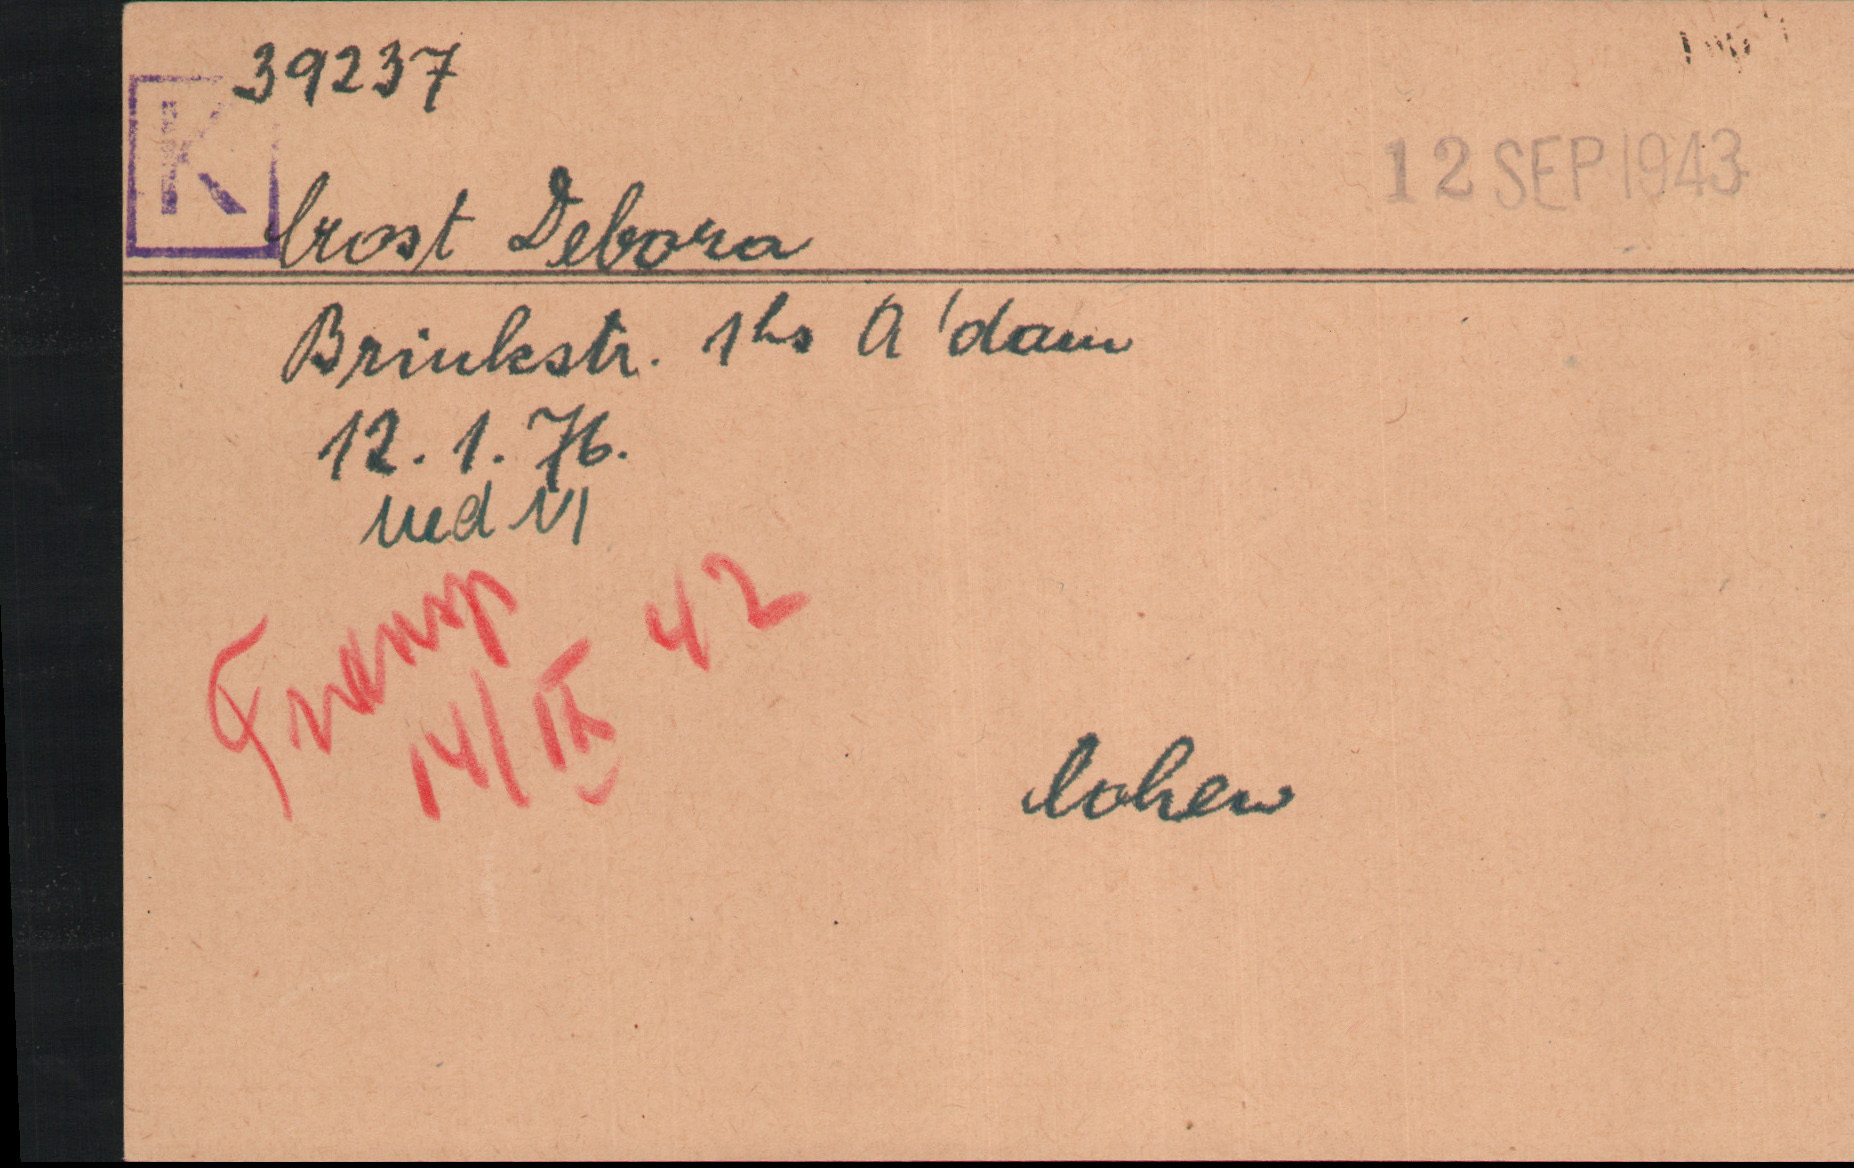 39237
K
12 SEP 1943
Crost Debora
Brinkstr. 1hs A'dam
12.1.76.
Ned NI
Transp
14/IX 42
Cohen